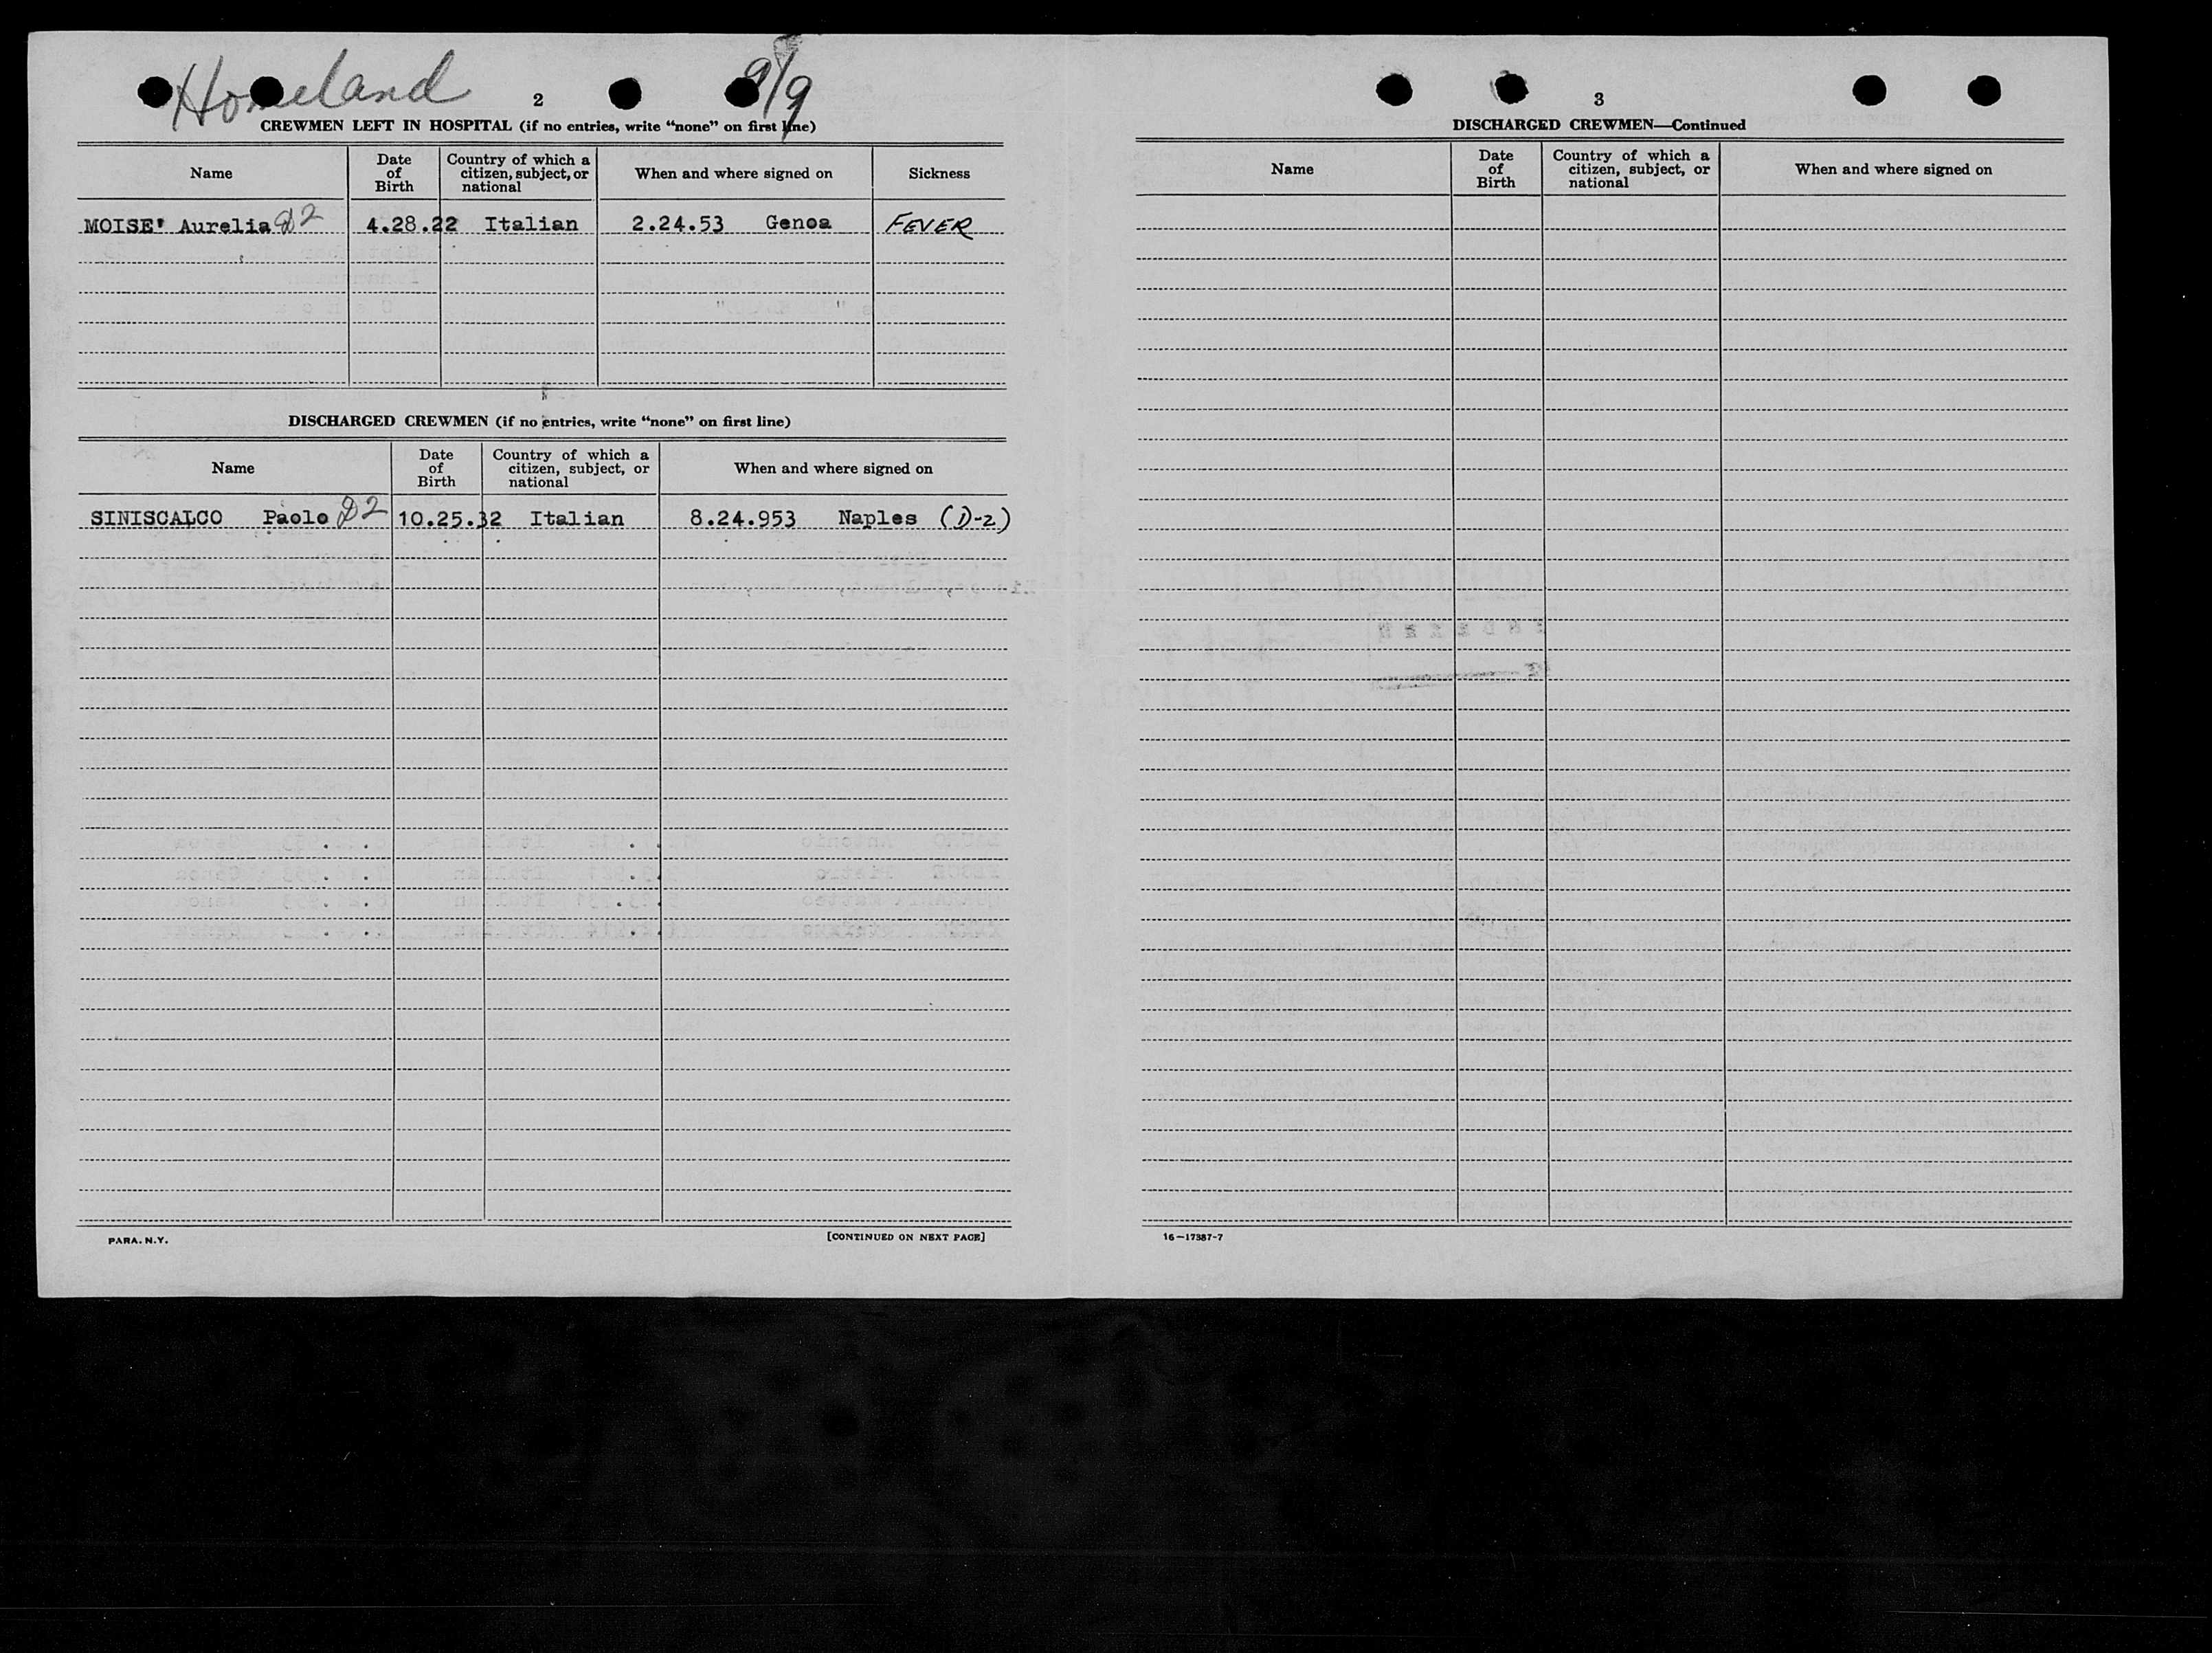 Homeland 9/9
2
CREWMEN LEFT IN HOSPITAL (if no entries, write “none” on first line)
Name
Date of Birth
Country of which a citizen, subject, or national
When and where signed on
Sickness
MOISE' Aurelia D2 4.28.22 Italian 2.24.53 Genoa FEVER
DISCHARGED CREWMEN (if no entries, write “none” on first line)
Name
Date of Birth
Country of which a citizen, subject, or national
When and where signed on
SINISCALCO Paolo D2 10.25.32 Italian 8.24.953 Naples (D-2)
PARA. N.Y.
[CONTINUED ON NEXT PAGE]
3
DISCHARGED CREWMEN—Continued
Name
Date of Birth
Country of which a citizen, subject, or national
When and where signed on
16—17387-7